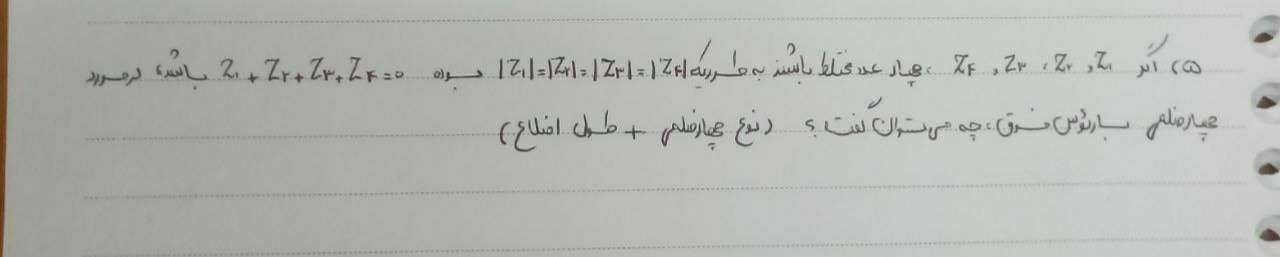 ۵) اگر Z۱ , Z۲ , Z۳ , Z۴ ، چهار عدد مختلط باشند به طوریکه |Z۱|=|Z۲|=|Z۳|=|Z۴| بوده Z۱+Z۲+Z۳+Z۴=۰ باشد، در مورد
چهارضلعی با رئوس فوق، چه می توان گفت؟ (نوع چهارضلعی + طول اضلاع)